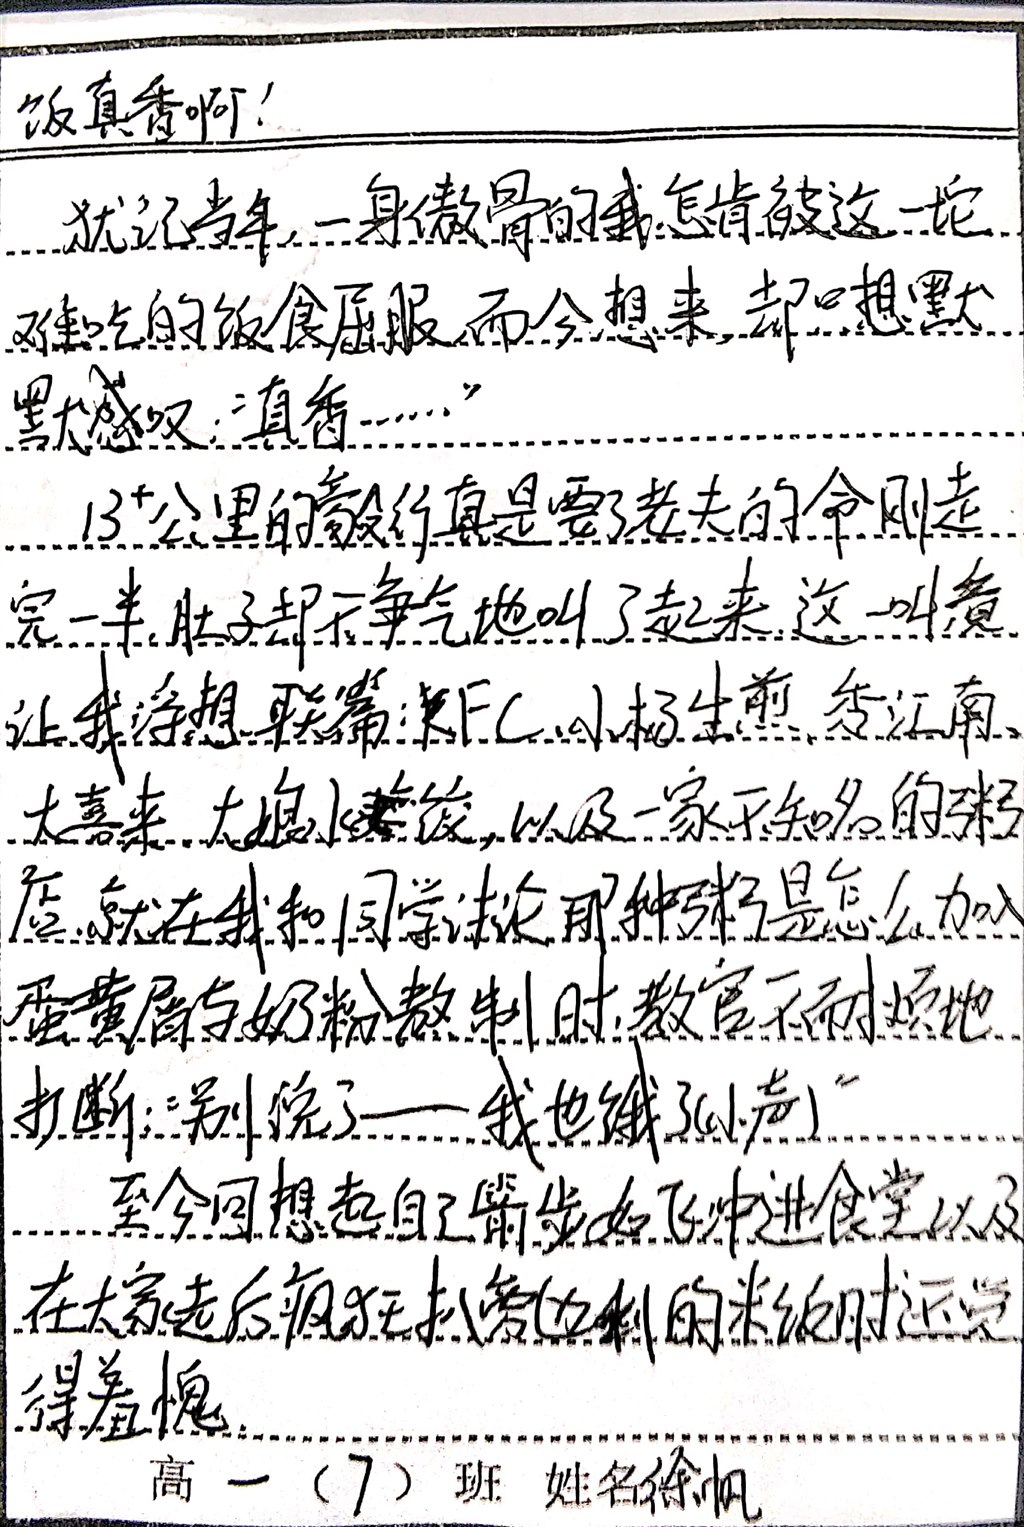 饭真香啊!
犹记当年,一身傲骨的我怎肯被这一坨
难吃的饭食屈服,而今想来,却只想默
默感叹:“真香……”
13+公里的毅行真是要了老夫的命,刚走
完一半,肚子却不争气地叫了起来,这一叫竟
让我浮想联篇:KFC、小杨生煎、香江南、
大喜来、大娘水饺,以及一家不知名的粥
店,就在我和同学讨论那种粥是怎么加入
蛋黄屑与奶粉熬制时,教官不耐烦地
打断:“别说了——我也饿了(小声)”
至今回想起自己箭步如飞冲进食堂以及
在大家走后疯狂扒旁边剩的米饭时还觉
得羞愧.
高一(7)班 姓名徐帆